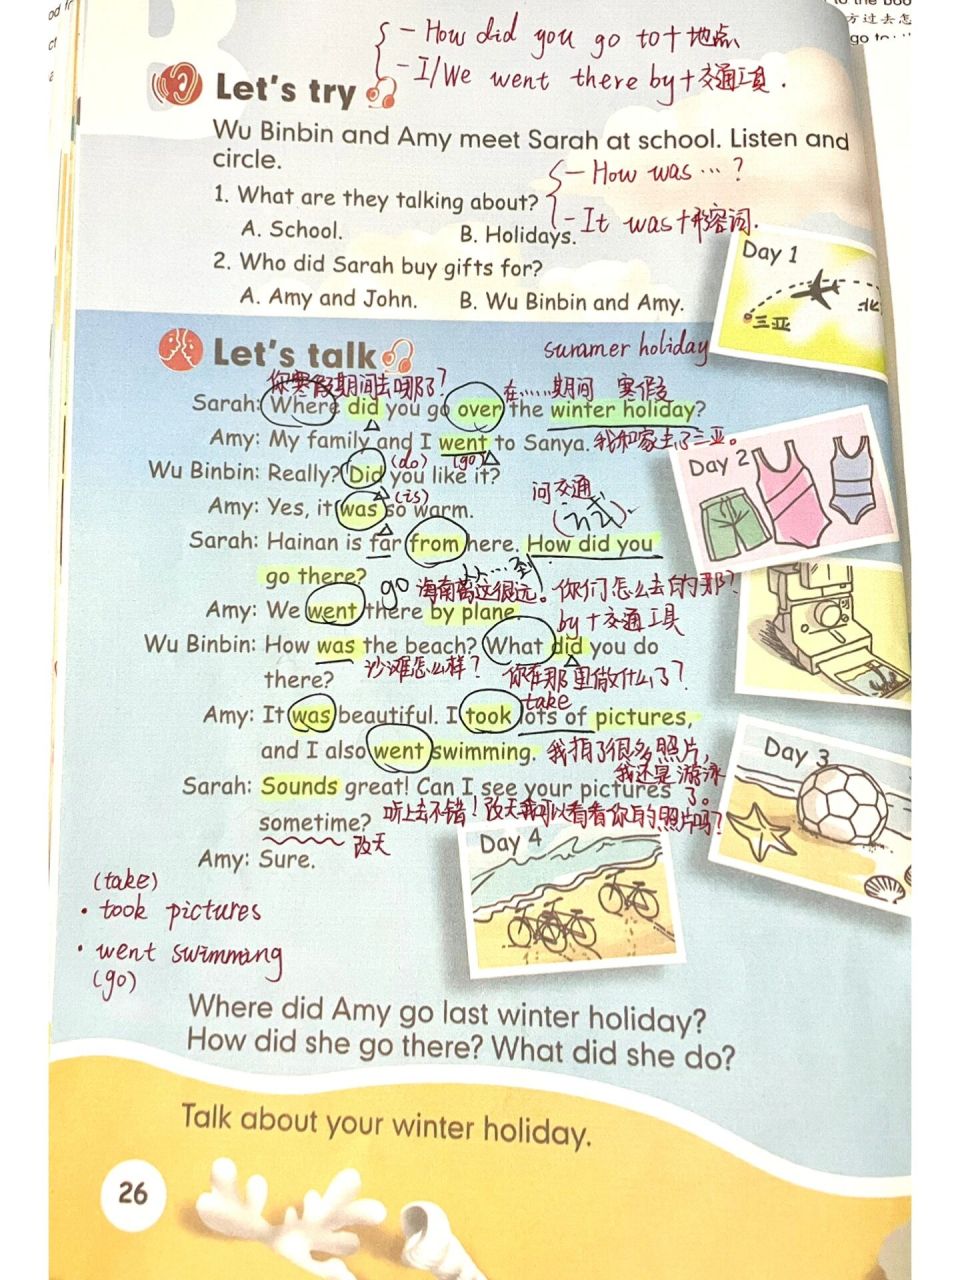 - How did you go to+地点
- I/We went there by+交通工具.
Let's try
Wu Binbin and Amy meet Sarah at school. Listen and
circle.
- How was ...?
1. What are they talking about?
- It was+形容词.
A. School. B. Holidays.
2. Who did Sarah buy gifts for?
A. Amy and John. B. Wu Binbin and Amy.
Day 1
三亚
Let's talk
summer holiday
你寒假期间去哪了? 在......期间 寒假
Sarah: Where did you go over the winter holiday?
Amy: My family and I went to Sanya. 我和家去了三亚。
(do) (go)
Wu Binbin: Really? Did you like it?
Day 2
(is)
Amy: Yes, it was so warm.
问交通
(方式)
Sarah: Hainan is far from here. How did you
从...到
go there? go 海南离这很远。你们怎么去的那?
Amy: We went there by plane. by+交通工具
Wu Binbin: How was the beach? What did you do
沙滩怎么样? 你在那里做什么了?
there?
take
Amy: It was beautiful. I took lots of pictures,
and I also went swimming. 我拍了很多照片,
我还是游泳
了。
Sarah: Sounds great! Can I see your pictures
sometime? 听上去不错!改天我可以看看你的照片吗?
改天
Amy: Sure.
Day 3
Day 4
(take)
· took pictures
· went swimming
(go)
Where did Amy go last winter holiday?
How did she go there? What did she do?
Talk about your winter holiday.
26